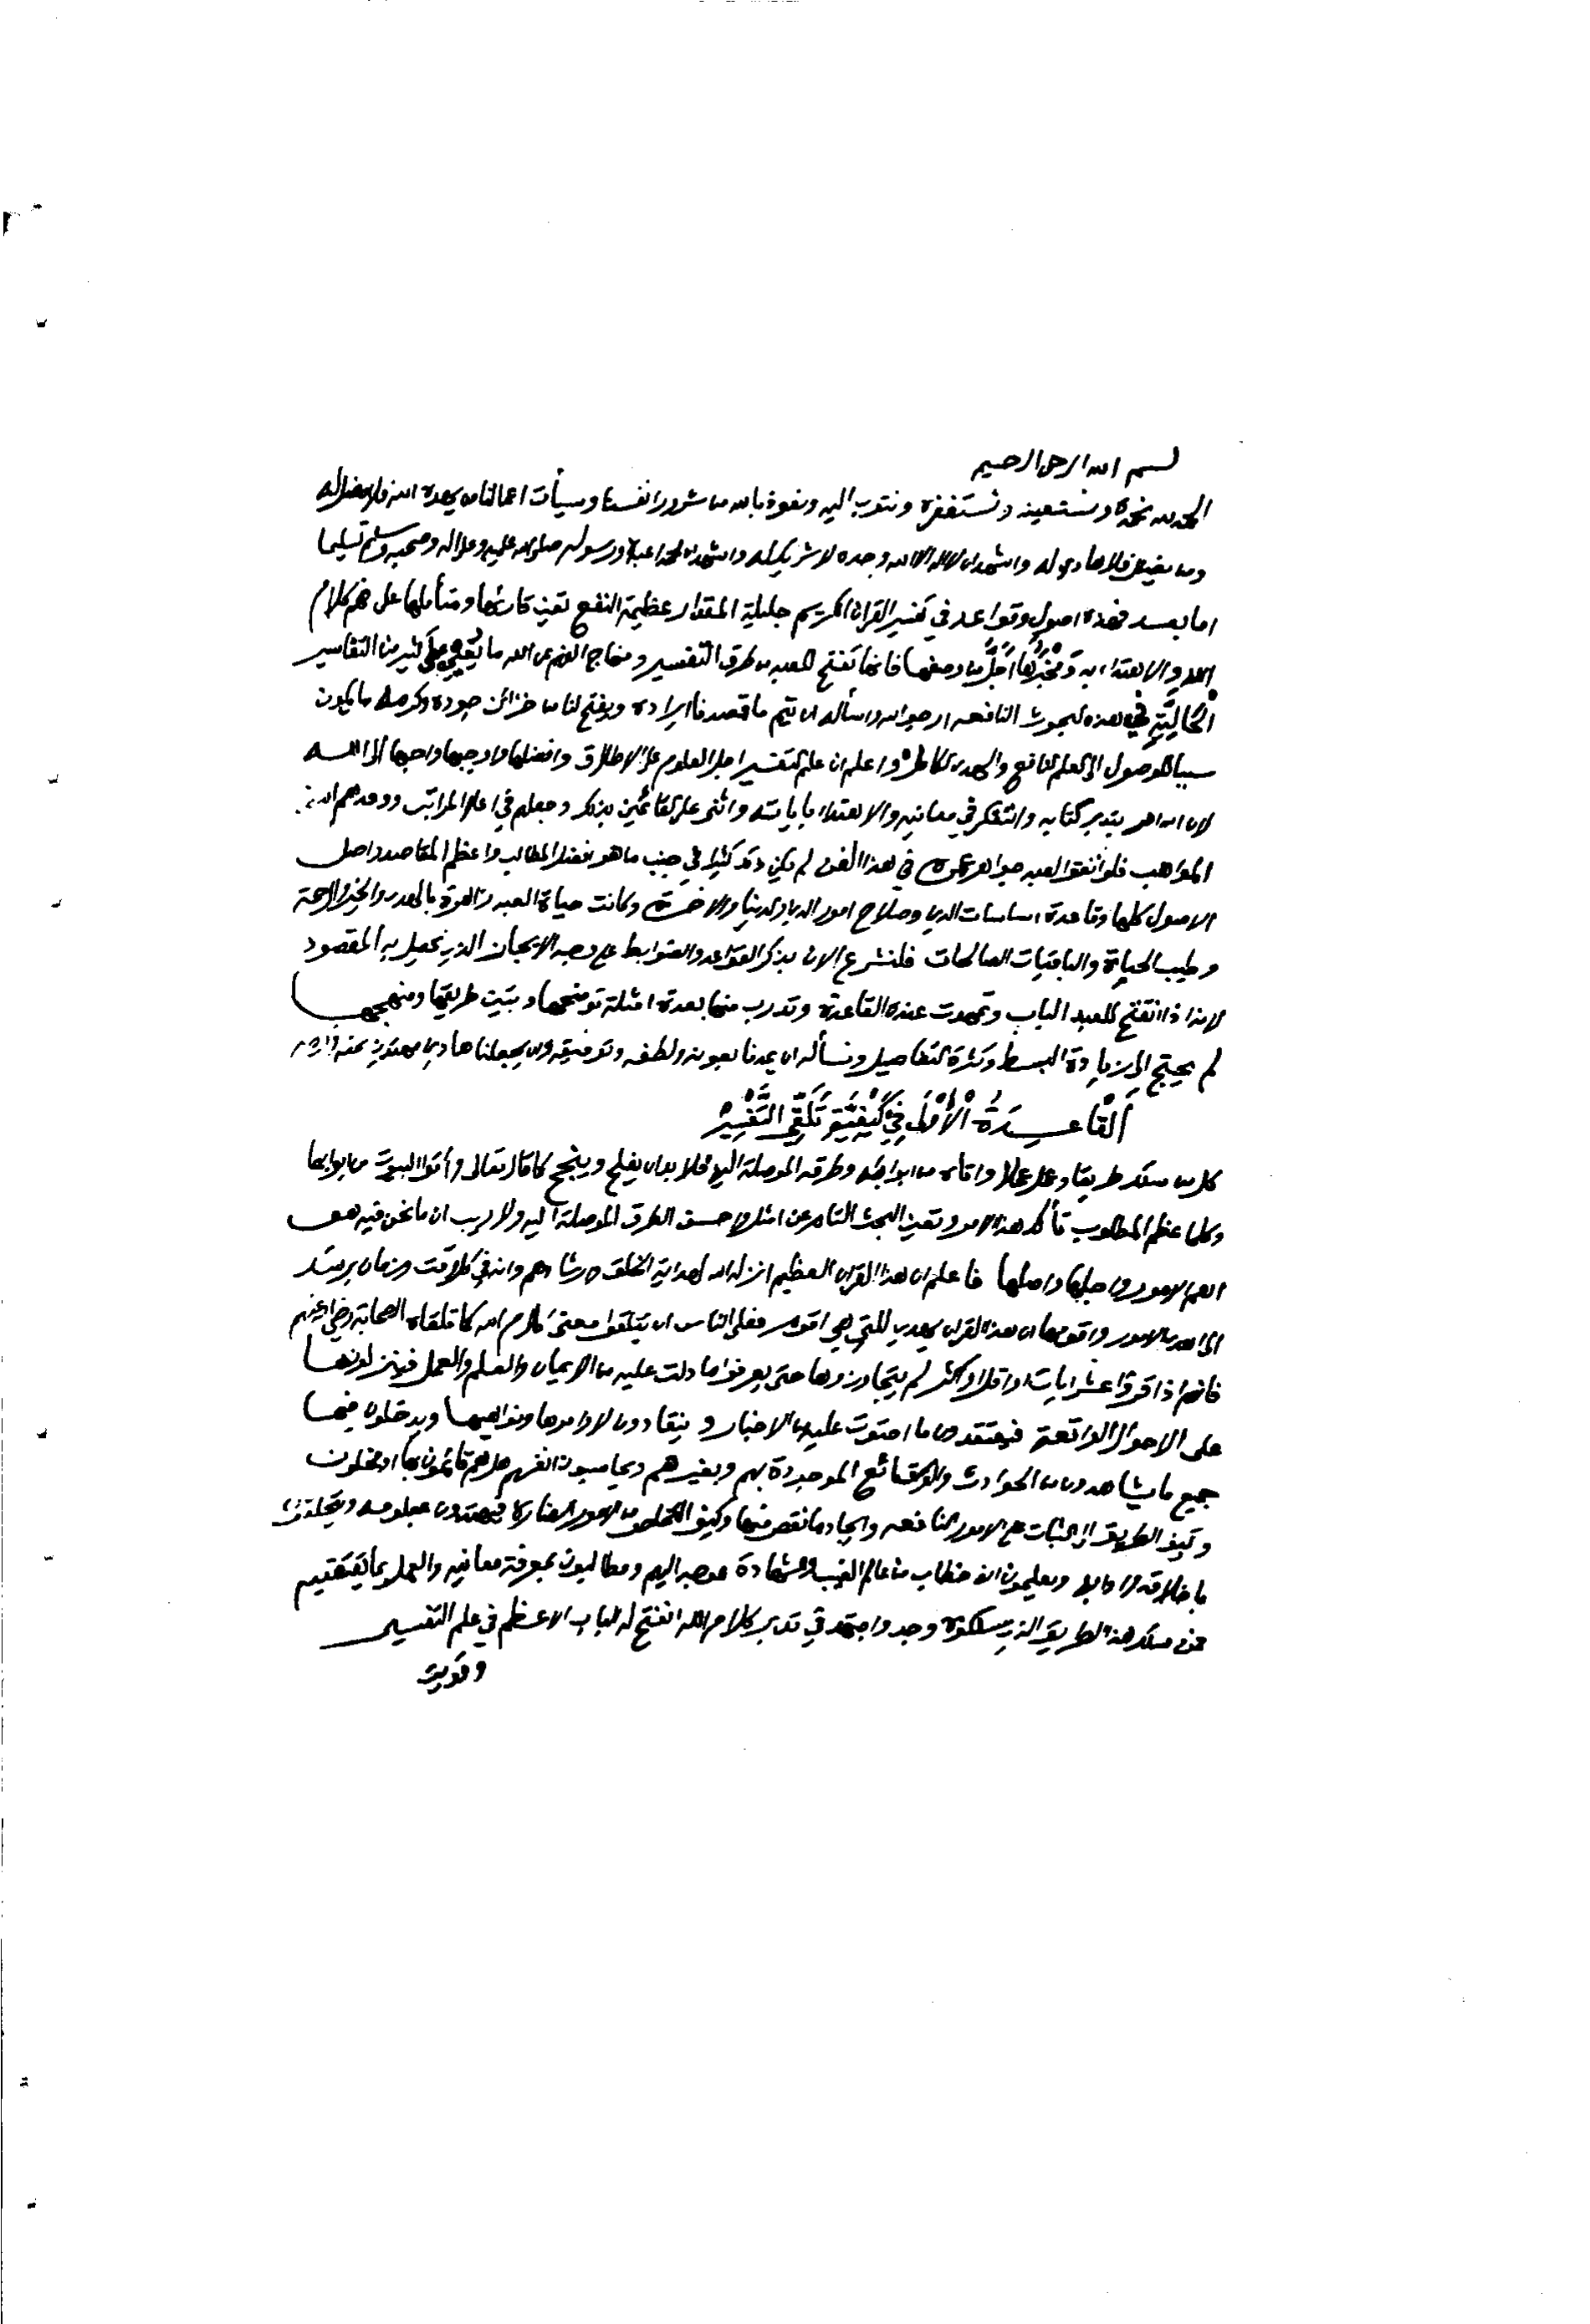 بسم الله الرحمن الرحيم
الحمد لله نحمده ونستعينه ونستغفره ونتوب اليه ونعوذ بالله من شرور انفسنا وسيأت اعمالنا من يهده الله فلا مضل له
ومن يضلل فلا هادي له واشهد ان لا اله الا الله وحده لا شريك له واشهد ان محمدا عبده ورسوله صلى الله عليه وعلى اله وصحبه وسلم تسليما
اما بعد فهذه اصول وقواعد في تفسير القران الكريم جليلة المقدار عظيمة النفع تعين قارئها ومتأملها على فهم كلام
الله والاهتداء به ومخبرها اجل من وصفها فانها تفتح للعبد من طرق التفسير ومنهاج الفهم عن الله ما يغني عن كثير من التفاسير
الخالية في هذه البحوث النافعه ارجو الله واسأله ان يتم ما قصدنا ايراده ويفتح لنا من خزائن جوده وكرمه ما يكون
سببا للوصول الى العلم النافع والهدى الكامل واعلم ان علم التفسير اجل العلوم على الاطلاق وافضلها واوجبها واحبها الى الله
لان الله امر بتدبر كتابه والتفكر في معانيه والاهتداء باياته واثنى على القائمين بذلك وجعلهم في اعلى المراتب ووعدهم اسنى
المواهب فلو انفق العبد جواهر عمره في هذا الفن لم يكن ذلك كثيرا في جنب ما هو افضل المطالب واعظم المقاصد واصل
الاصول كلها وقاعدة اساسات الدين وصلاح امور الدين والدنيا والاخرة وكانت حياة العبد زاهرة بالهدى والخير والرحمة
وطيب الحياة والباقيات الصالحات فلنشرع الان بذكر القواعد والضوابط على وجه الايجاز الذي يحصل به المقصود
لانه اذا انفتح للعبد الباب وتمهدت عنده القاعدة وتدرب منها بعدة امثلة توضحها وتبين طريقها ومنهجها
لم يحتج الى زيادة البسط وكثرة التفاصيل ونسأله ان يمدنا بعونه ولطفه وتوفيقه وان يجعلنا هادين مهتدين بمنه
اَلْقَاعِدَةُ الْأُوْلَى فِيْ كَيْفِيَّةِ تَلَقِّي التَّفْسِيْرِ
كل من سلك طريقا وعمل عملا واتاه من ابوابه وطرقه الموصلة اليه فلا بد ان يفلح وينجح كما قال تعالى وأتوا البيوت من ابوابها
وكلما عظم المطلوب تأكد هذا الامر وتعين البحث التام عن امثل واحسن الطرق الموصلة اليه ولا ريب ان ما نحن فيه هو
اهم الامور واجلها واصلها فاعلم ان هذا القران العظيم انزله الله لهداية الخلق وارشادهم وانه في كل وقت وزمان يرشد
الى اهدى الامور واقومها ان هذا القران يهدي للتي هي اقوم فعلى الناس ان يتلقوا معنى كلام الله كما تلقاه الصحابة رضي الله عنهم
فانهم اذا قرؤا عشر ايات او اقل او اكثر لم يتجاوزوها حتى يعرفوا ما دلت عليه من الايمان والعلم والعمل فينزلونها
على الاحوال الواقعة فيعتقدون ما احتوت عليه من الاخبار وينقادون لاوامرها ونواهيها ويدخلون فيها
جميع ما يشاهدون من الحوادث والوقائع الموجودة بهم وبغيرهم ويحاسبون انفسهم هل هم قائمون بها او مخلون
وكيف الطريق الى الثبات على الامور النافعه وايجاد ما نقص منها وكيف التخلص من الامور الضارة فيهتدون بعلومه ويتخلقون
باخلاقه وادابه ويعلمون انه خطاب من عالم الغيب والشهادة موجه اليهم ومطالبون بمعرفة معانيه والعمل بما يقتضيه
فمن سلك هذا الطريق الذي سلكوه وجد واجتهد في تدبر كلام الله انفتح له الباب الاعظم في علم التفسير
وقويت